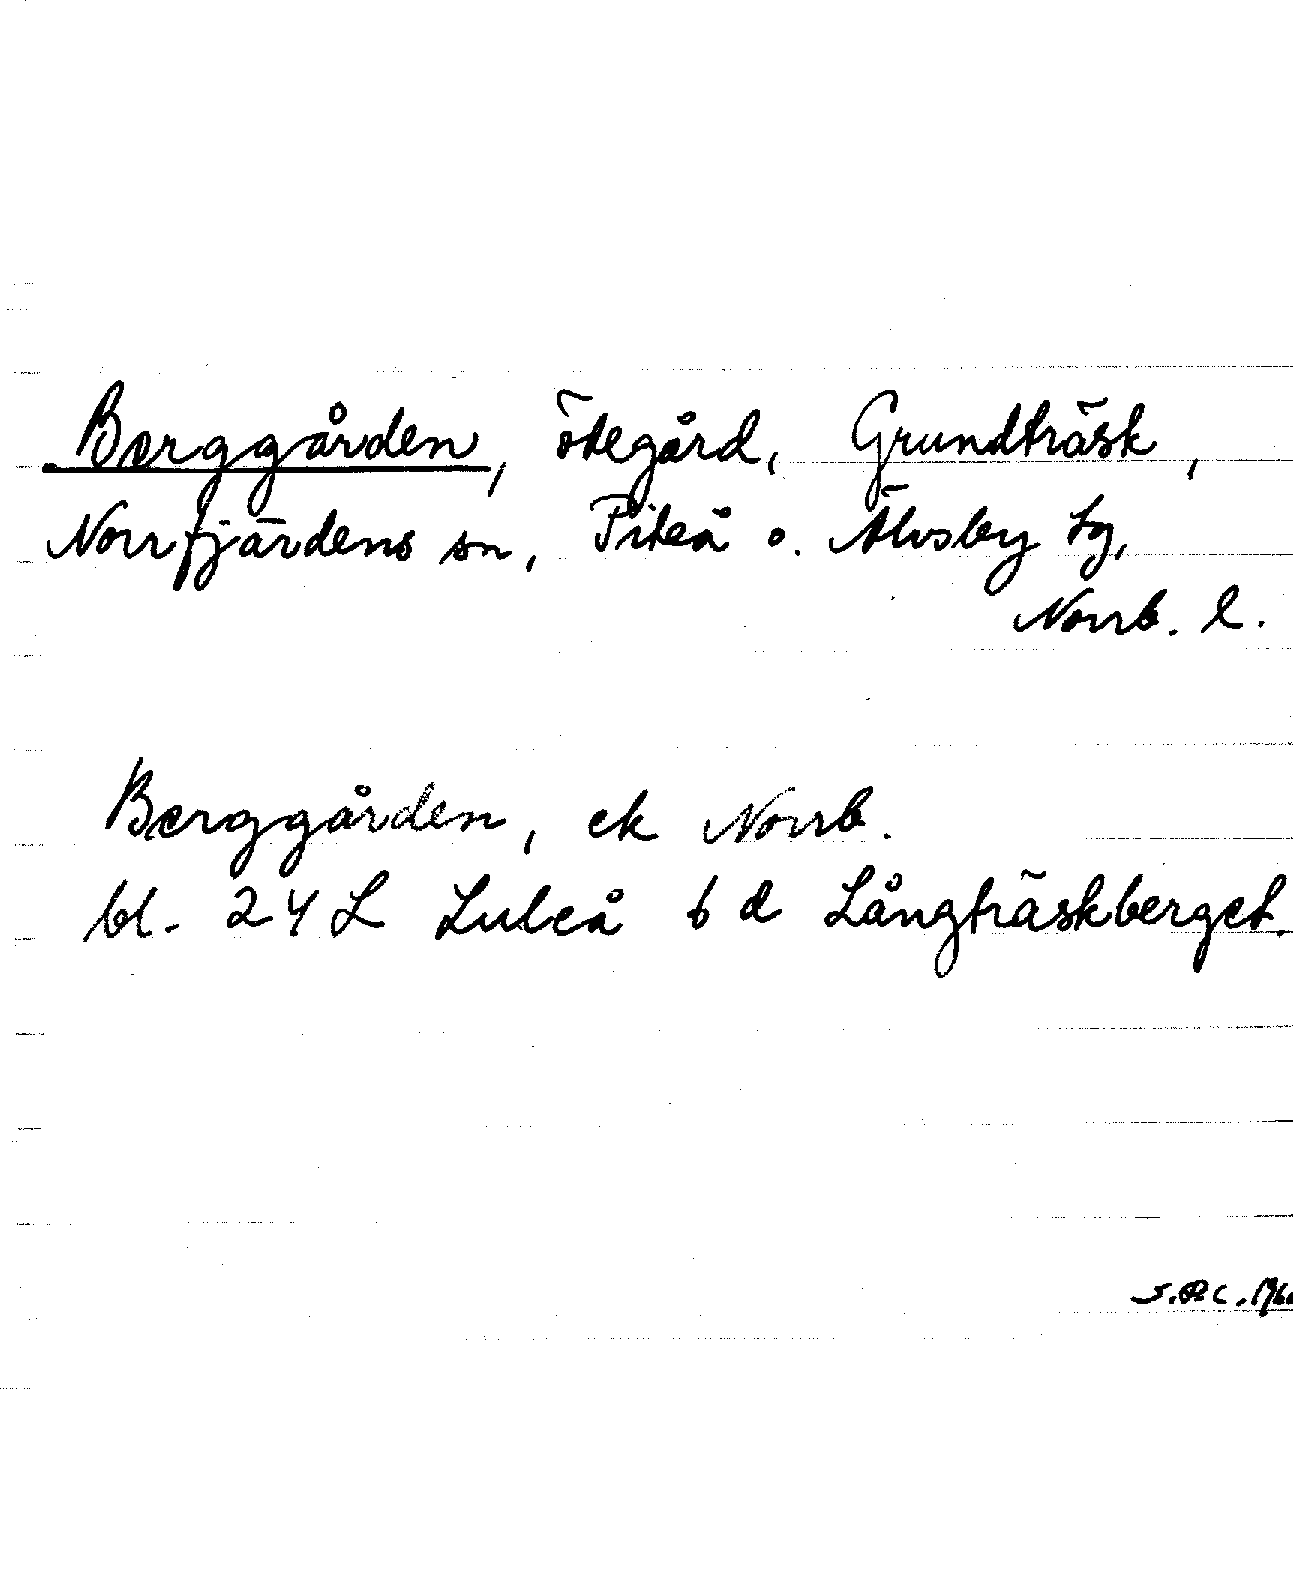 Berggården, ödegård, Grundträsk,
Norrfjärdens sn, Piteå o. Älvsby tg,
Norrb. l.
Berggården, ek Norrb.
bl. 24 L Luleå 6 d Långträskberget.